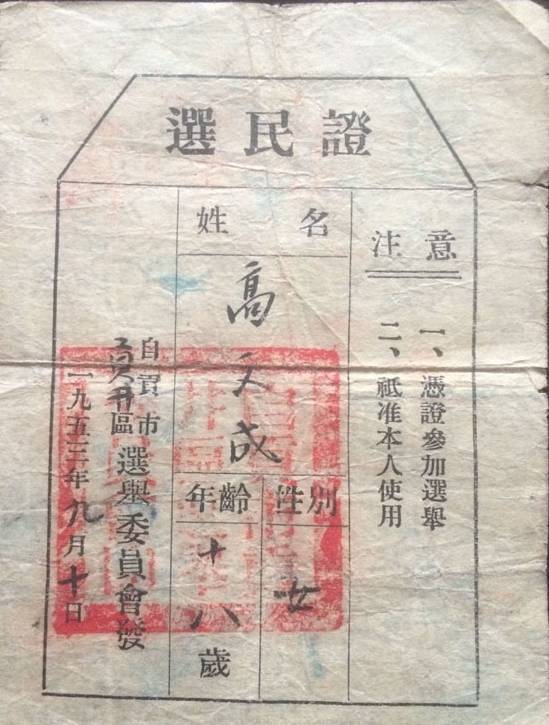 選民證
注意
一、憑證參加選舉
二、祇准本人使用
姓名
高文成
性別
女
年齡
十八歲
自貢市
貢井區
選舉委員會發
一九五三年九月十日